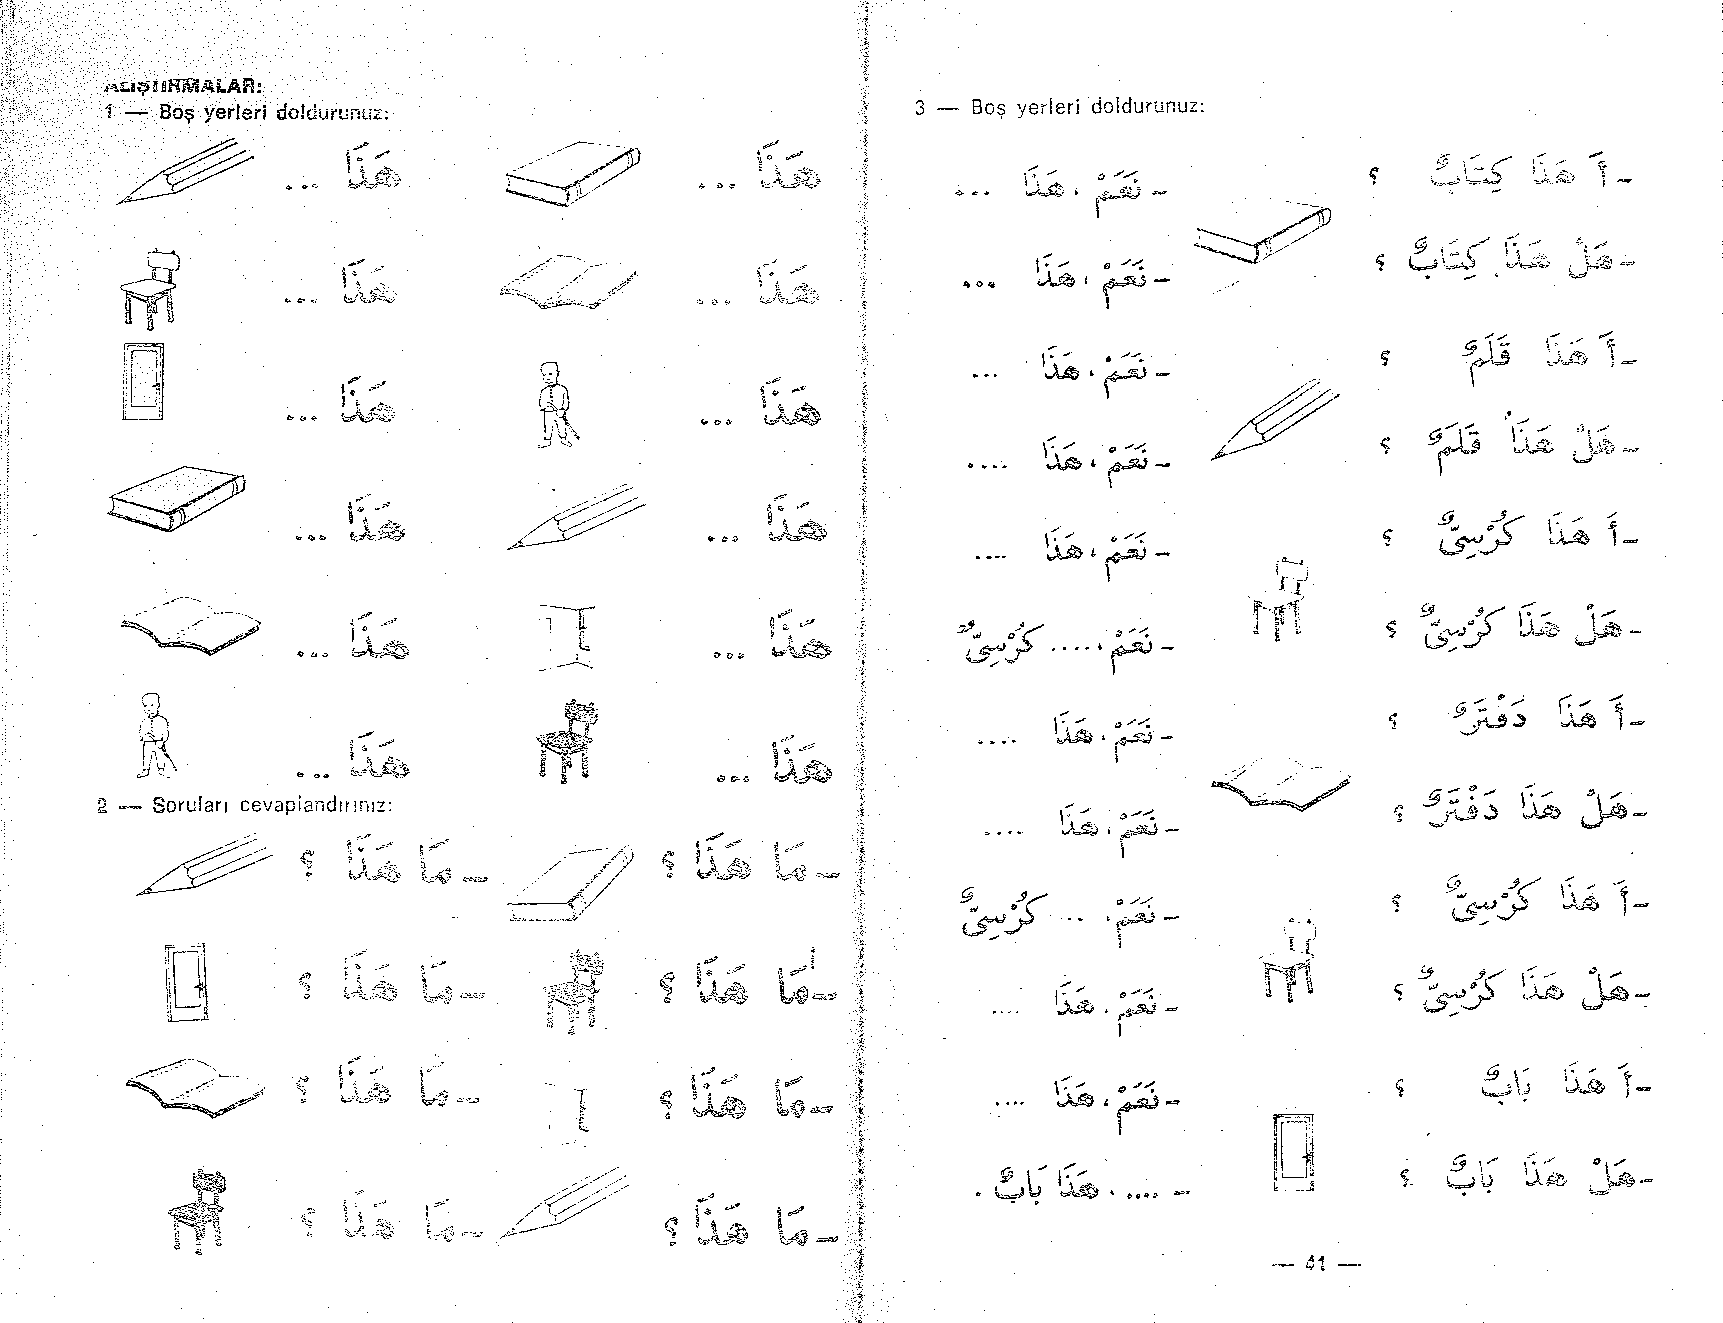 ALIŞTIRMALAR:
1 — Boş yerleri doldurunuz:
هَذَا ...
هَذَا ...
هَذَا ...
هَذَا ...
هَذَا ...
هَذَا ...
هَذَا ...
هَذَا ...
هَذَا ...
هَذَا ...
هَذَا ...
هَذَا ...
2 — Soruları cevaplandırınız:
–مَا هَذَا ؟
–مَا هَذَا ؟
–مَا هَذَا ؟
–مَا هَذَا ؟
–مَا هَذَا ؟
–مَا هَذَا ؟
–مَا هَذَا ؟
–مَا هَذَا ؟
3 — Boş yerleri doldurunuz:
–أَ هَذَا كِتَابٌ ؟
–نَعَمْ ، هَذَا ...
–هَلْ هَذَا كِتَابٌ ؟
–نَعَمْ ، هَذَا ...
–أَ هَذَا قَلَمٌ ؟
–نَعَمْ ، هَذَا ...
–هَلْ هَذَا قَلَمٌ ؟
–نَعَمْ ، هَذَا ....
–أَ هَذَا كُرْسِىٌّ ؟
–نَعَمْ ، هَذَا ....
–هَلْ هَذَا كُرْسِىٌّ ؟
–نَعَمْ ، ..... كُرْسِىٌّ
–أَ هَذَا دَفْتَرٌ ؟
–نَعَمْ ، هَذَا ....
–هَلْ هَذَا دَفْتَرٌ ؟
–نَعَمْ ، هَذَا ....
–أَ هَذَا كُرْسِىٌّ ؟
–نَعَمْ ، ... كُرْسِىٌّ
–هَلْ هَذَا كُرْسِىٌّ ؟
–نَعَمْ ، هَذَا ....
–أَ هَذَا بَابٌ ؟
–نَعَمْ ، هَذَا ....
–هَلْ هَذَا بَابٌ ؟
– ..... ، هَذَا بَابٌ .
— 41 —